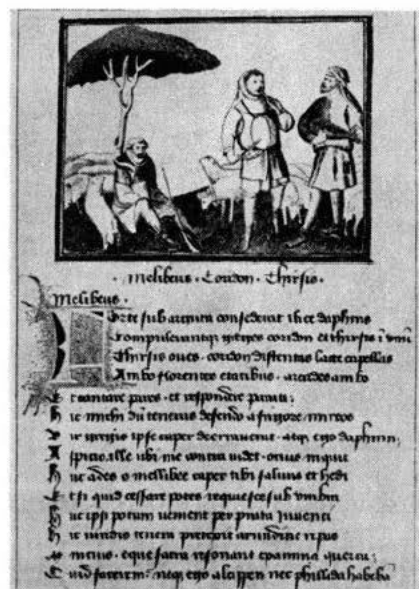 · Melibeus · Coridon · Thirsis ·
Melibeus ·
Forte sub arguta consederat ilice daphnis
Compulerantque greges coridon et thirsis i unu
Thirsis oves · coridon distentas lacte capellas
Ambo florentes etatibus · arcades ambo
Et cantare pares · et respondere parati
Hic michi du teneras defendo a frigore mirtos
Vir gregis ipse caper deerraverat · atq ego daphnim
Aspicio · ille ubi me contra videt · ocius inquit
Huc ades o melibee caper tibi salvus et hedi
Et si quid cessare potes requiesce sub umbra
Huc ipsi potum venient per prata iuvenci
Hic viridis tenera pretexit arundine ripas
Mincius · eque sacra resonant examina quercu
Quid facerem neq ego alcippen nec phillida habeba